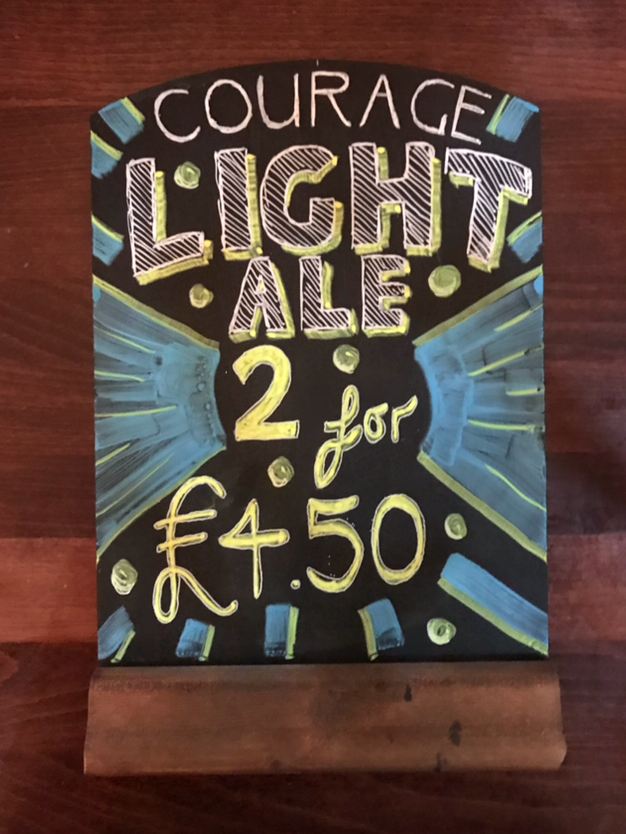 COURAGE
LIGHT
ALE
2 for
£4.50